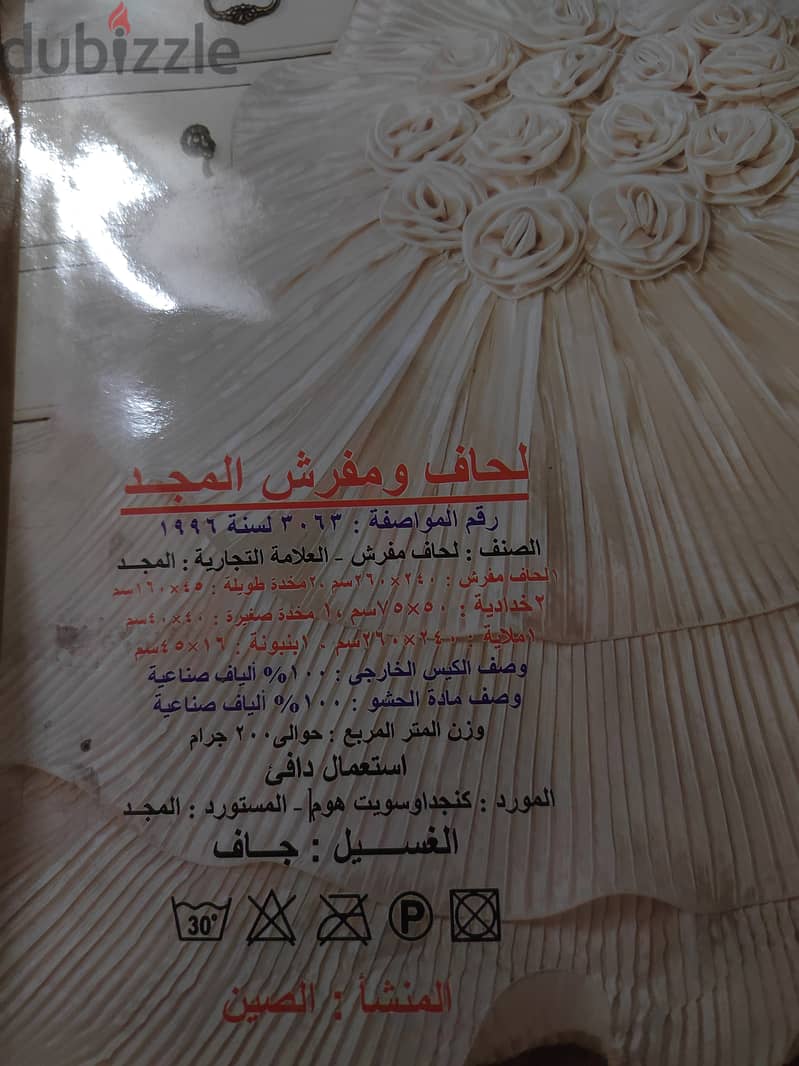 dubizzle
لحاف ومفرش المجد
رقم المواصفة : ٣٠٦٣ لسنة ١٩٩٦
الصنف : لحاف مفرش - العلامة التجارية : المجد
١لحاف مفرش : ٢٤٠×٢٦٠سم ،٢مخدة طويلة : ٤٥×١٦٠سم
٢خدادية : ٥٠×٧٥سم ،١ مخدة صغيرة : ٤٠×٤٠سم
١ملاية : ٢٤٠×٢٦٠سم ، ١بنبونة : ١٦×٤٥سم
وصف الكيس الخارجى : ١٠٠% ألياف صناعية
وصف مادة الحشو : ١٠٠% ألياف صناعية
وزن المتر المربع : حوالى٢٠٠ جرام
استعمال دافئ
المورد : كنجداوسويت هوم - المستورد : المجد
الغسيل : جاف
30° P
المنشأ : الصين